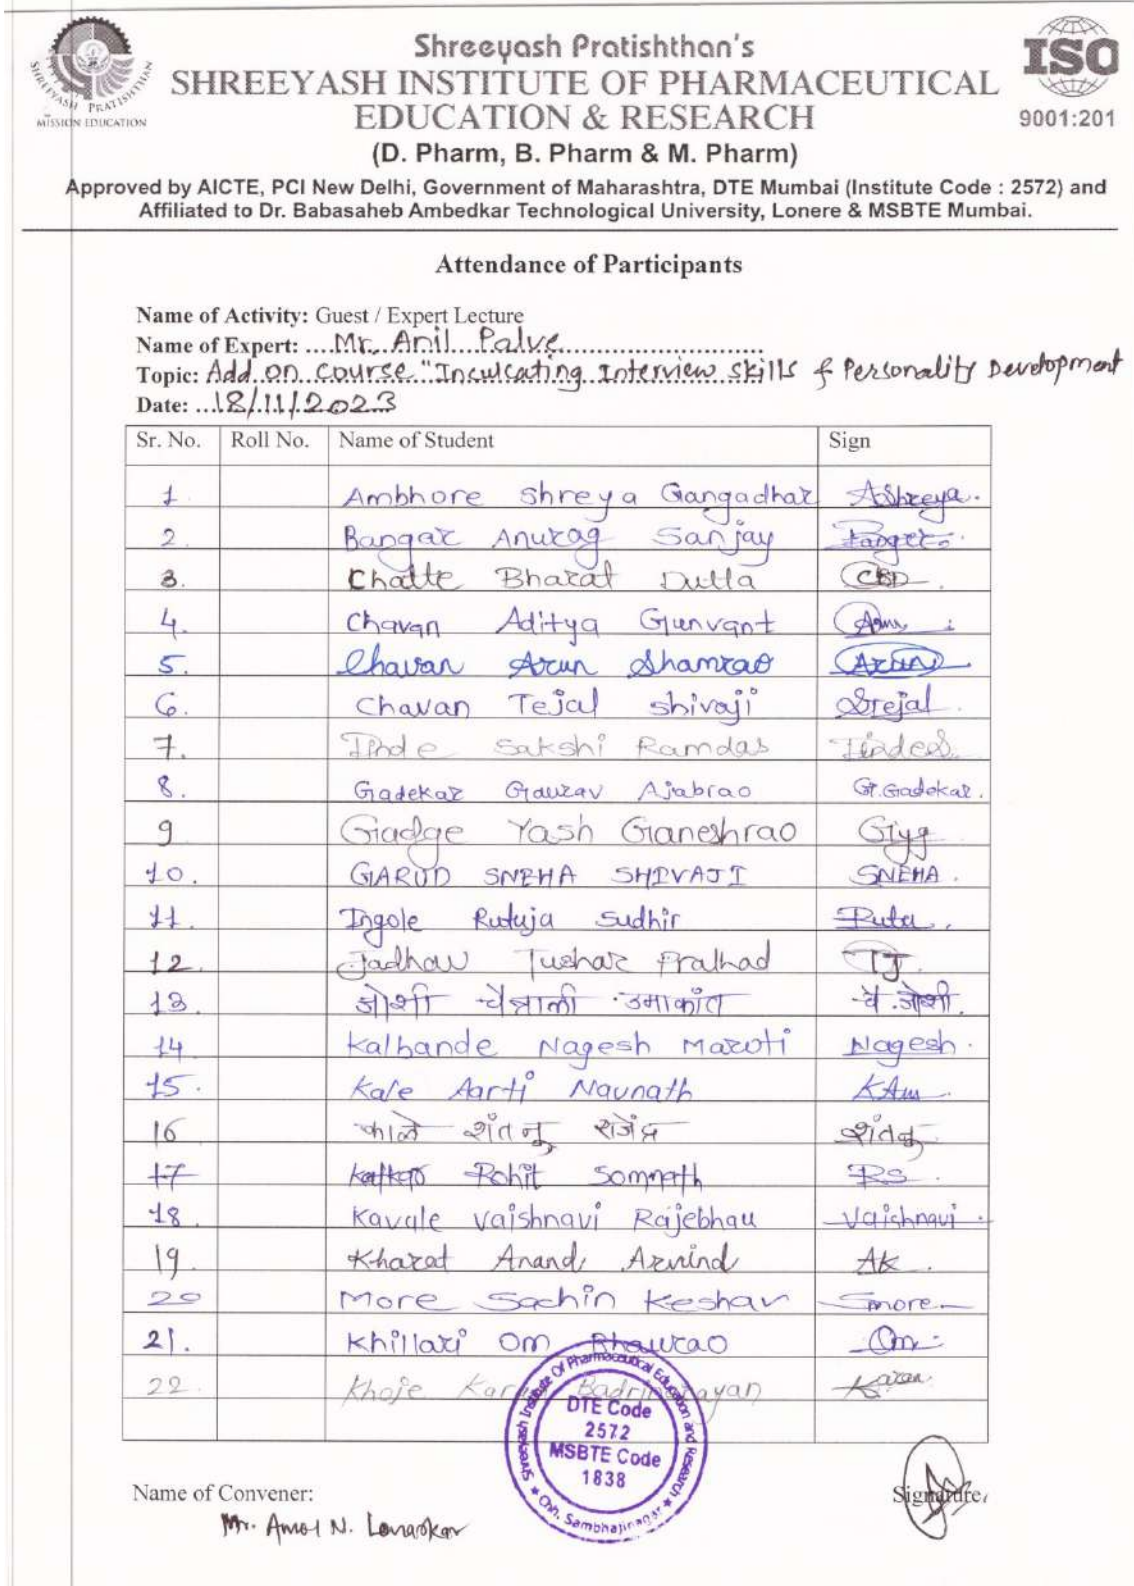 SHREEYASH PRATISHTHAN
MISSION EDUCATION
Shreeyash Pratishthan's
SHREEYASH INSTITUTE OF PHARMACEUTICAL
EDUCATION & RESEARCH
(D. Pharm, B. Pharm & M. Pharm)
ISO
9001:201
Approved by AICTE, PCI New Delhi, Government of Maharashtra, DTE Mumbai (Institute Code : 2572) and
Affiliated to Dr. Babasaheb Ambedkar Technological University, Lonere & MSBTE Mumbai.
Attendance of Participants
Name of Activity: Guest / Expert Lecture
Name of Expert: ....Mr. Anil Palve
Topic: Add on course "Inculcating Interview skills & Personality Development
Date: ...18/11/2023
Sr. No. Roll No. Name of Student Sign
1 Ambhore Shreya Gangadhar AShreya.
2. Bangar Anurag Sanjay
3. Chatte Bharat Dutta CBD
4. Chavan Aditya Gunvant
5. Chavan Arun Shamrao Arun
6. Chavan Tejal shivaji
7. Sakshi Ramdas
8. Gadekar Gaurav Ajabrao G.Gadekar.
9 Gadge Yash Ganeshrao
10. GARUD SNEHA SHIVAJI SNEHA.
11. Ingole Rutuja Sudhir Ruta.
12. Jadhav Tushar Pralhad TJ.
13. जोशी चैत्राली उमाकांत चै.जोशी.
14 Kalhande Nagesh Maroti Nagesh.
15. Kale Aarti Navnath
16 काळे शंतनु राजेंद्र शंतनु
17 Rohit Somnath RS.
18 Kavale Vaishnavi Rajebhau Vaishnavi.
19. Kharat Anand Arvind AK.
20 More Sachin Keshav Smore
21. Khillari Om Bhaurao Om
22. Khoje Karan Badrinarayan Karan
Shreeyash Institute Of Pharmaceutical Education and Research
DTE Code
2572
MSBTE Code
1838
★ Chh. Sambhajinagar ★
Name of Convener:
Signature.
Mr. Amol N.